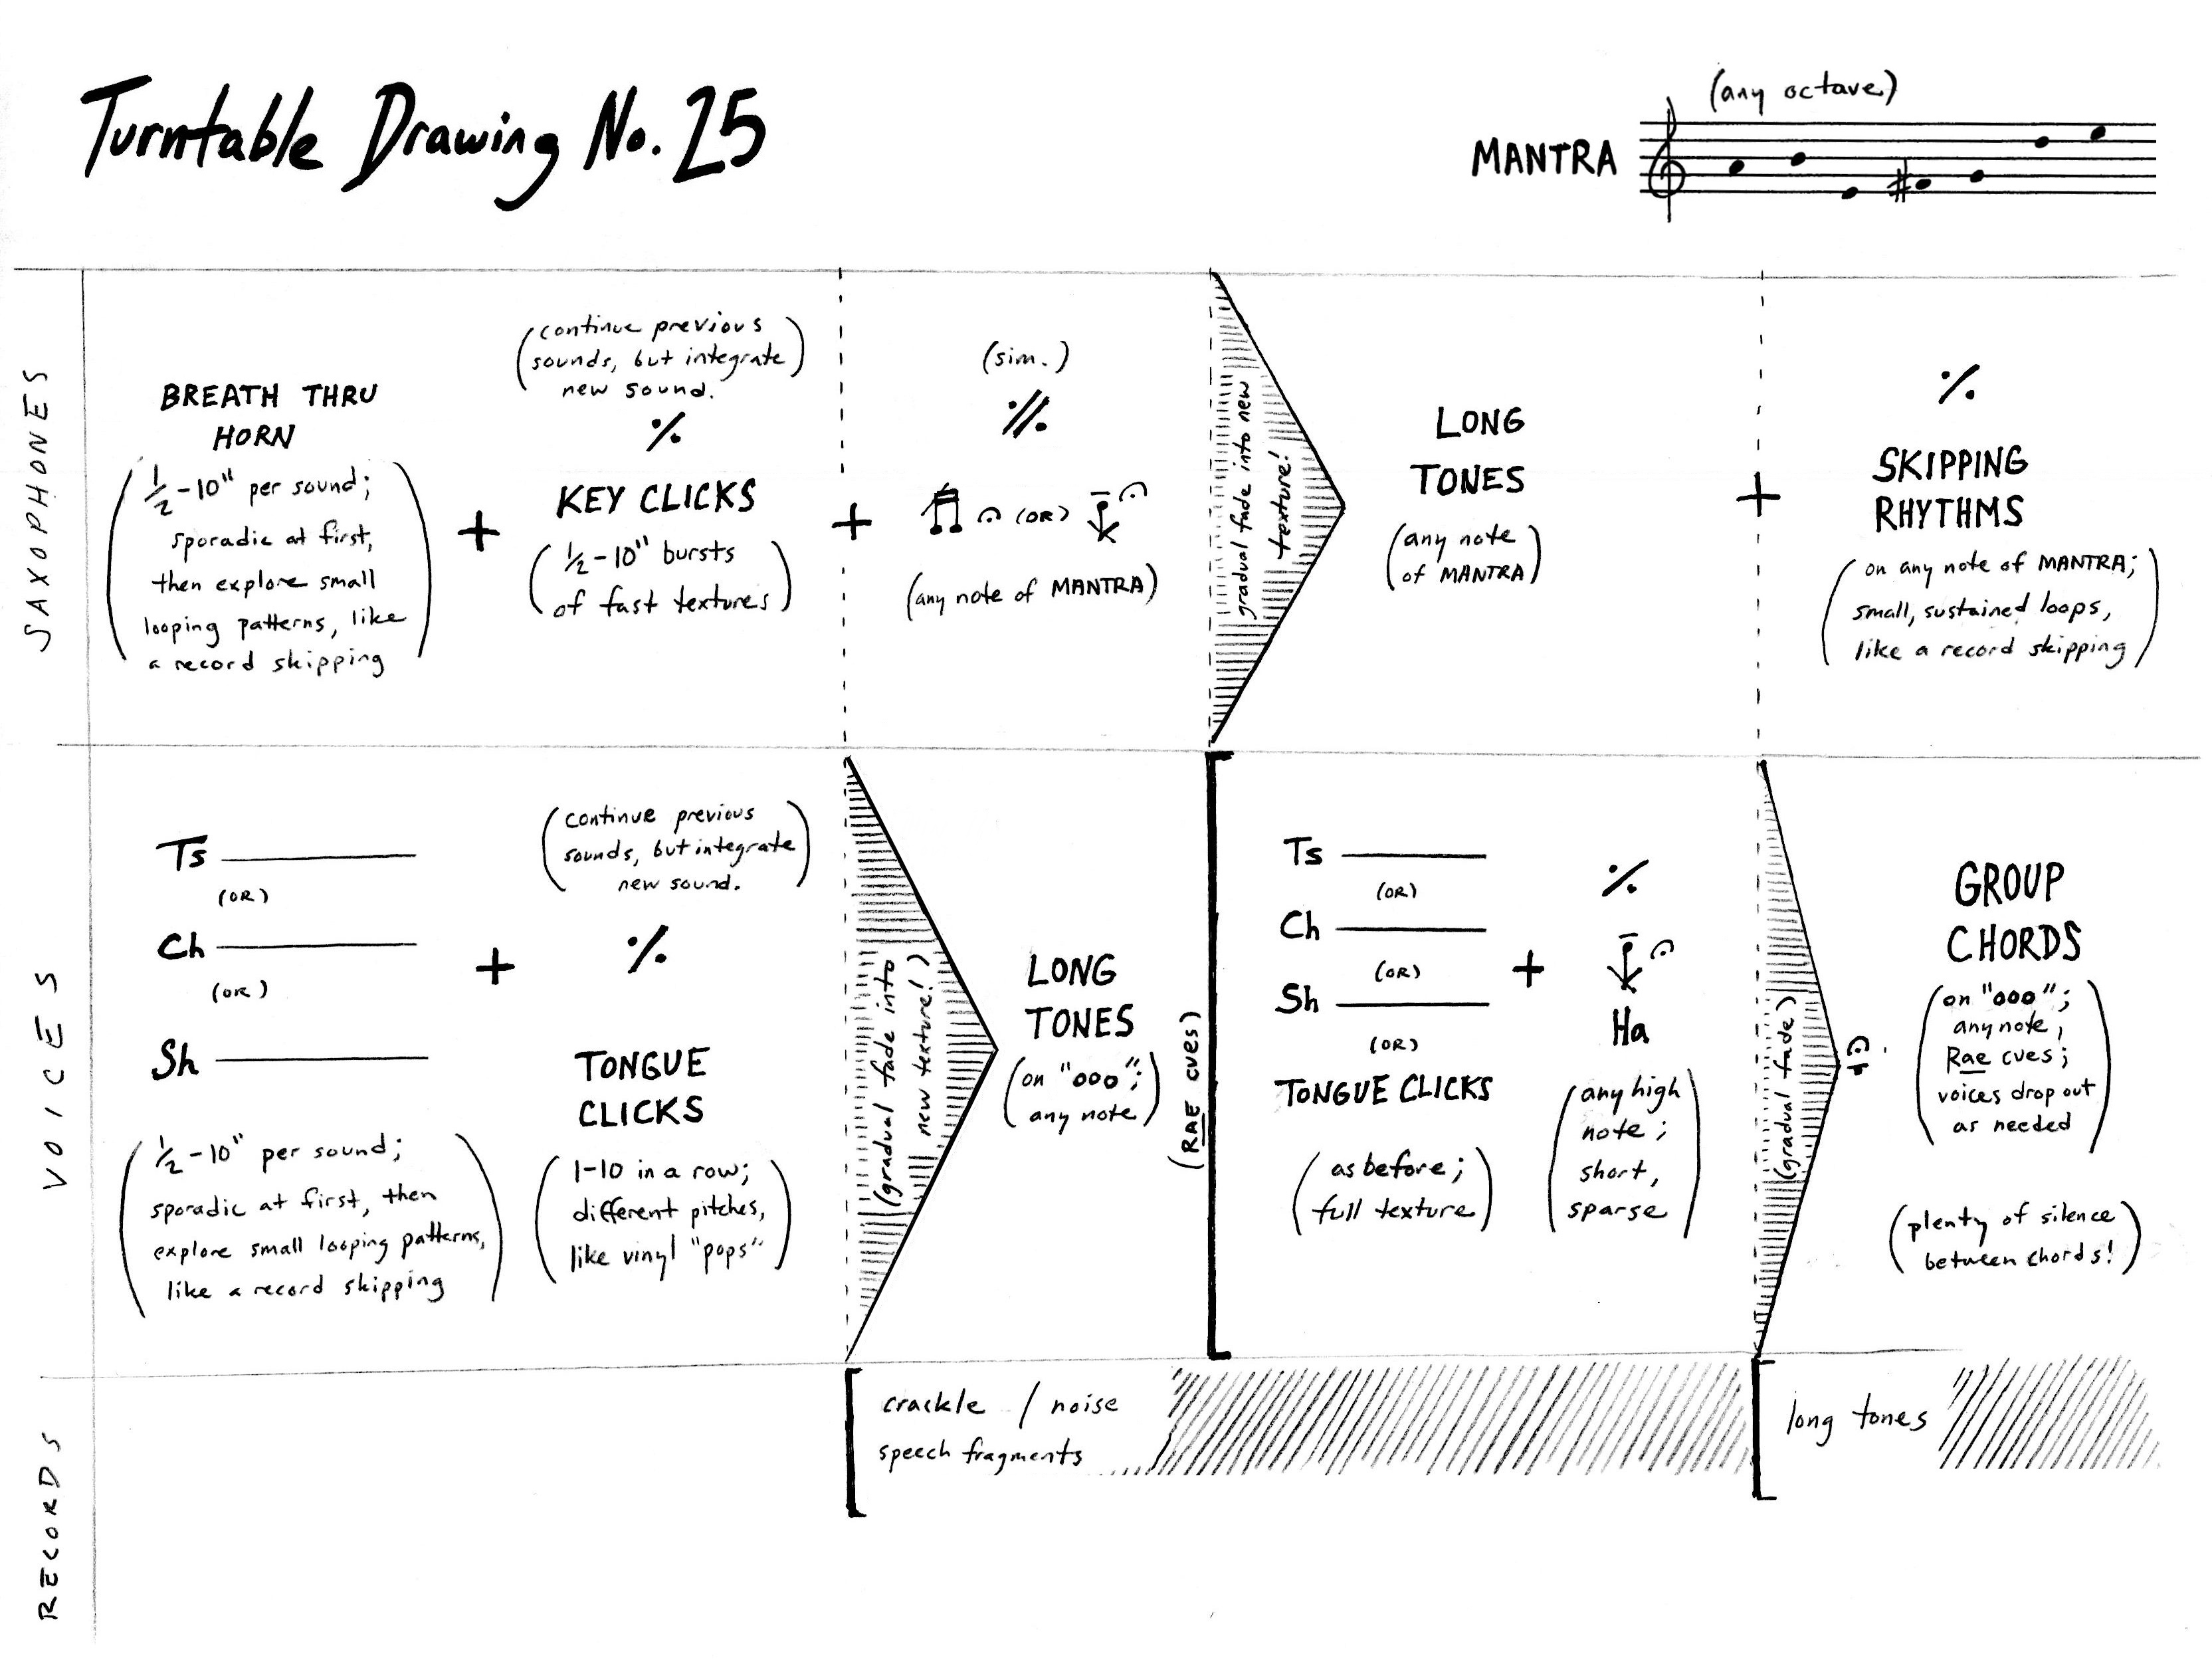 Turntable Drawing No. 25
(any octave)
MANTRA
SAXOPHONES
BREATH THRU
HORN
(½-10" per sound;
sporadic at first,
then explore small
looping patterns, like
a record skipping)
+
(continue previous
sounds, but integrate
new sound.)
KEY CLICKS
(½-10" bursts
of fast textures)
+
(sim.)
(OR)
(any note of MANTRA)
gradual fade into new
texture!
LONG
TONES
(any note
of MANTRA)
+
SKIPPING
RHYTHMS
(on any note of MANTRA;
small, sustained loops,
like a record skipping)
VOICES
Ts
(OR)
Ch
(OR)
Sh
(½-10" per sound;
sporadic at first, then
explore small looping patterns,
like a record skipping)
+
(continue previous
sounds, but integrate
new sound.)
TONGUE
CLICKS
(1-10 in a row;
different pitches,
like vinyl "pops")
(gradual fade into
new texture!)
LONG
TONES
(on "ooo";
any note)
(RAE cues)
Ts
(OR)
Ch
(OR)
Sh
(OR)
TONGUE CLICKS
(as before;
full texture)
+
Ha
(any high
note;
short,
sparse)
(gradual fade)
GROUP
CHORDS
(on "ooo";
any note,
Rae cues;
voices drop out
as needed)
(plenty of silence
between chords!)
RECORDS
crackle / noise
speech fragments
long tones